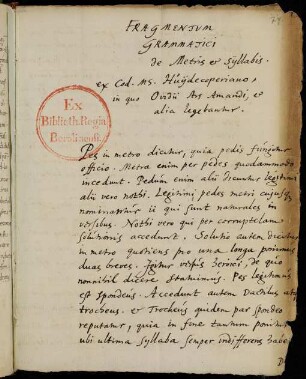 27
FRAGMENTUM
GRAMMATICI
de Metris et Syllabis.
ex Cod. MS. Huydecoperiano,
in quo Ovidii Ars Amandi, et
alia legebantur.
Ex
Biblioth. Regia
Berolinensi.
Pes in metro dicitur, quia pedis fungitur
officio. Metra enim per pedes quodammodo
incedunt. Pedum enim alii dicuntur legitimi
alii vero nothi. Legitimi pedes metri cujusque
nominantur ii qui sunt naturales in
versibus. Nothi vero qui per corruptelam
solutionis accedunt. Solutio autem dicitur
in metro quotiens pro una longa ponimus
duas breves. Igitur versus heroici, de quo
nonnihil dicere statuimus. Pes legitimus
est spondeus. Accedunt autem Dactilus et
trocheus. et Trocheus quidem par spondeo
reputatur, quia in fine tantum ponitur
ubi ultima syllaba semper indifferens habe-